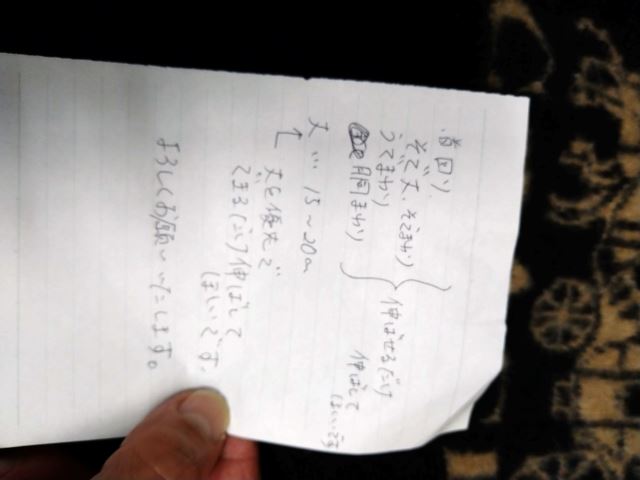 首回り
そで丈、そでまわり
うでまわり
胴まわり
伸ばせるだけ
伸ばして
ほしいです
丈…15~20cm
↑
丈を優先で
できるだけ伸ばして
ほしいです。
よろしくお願いいたします。